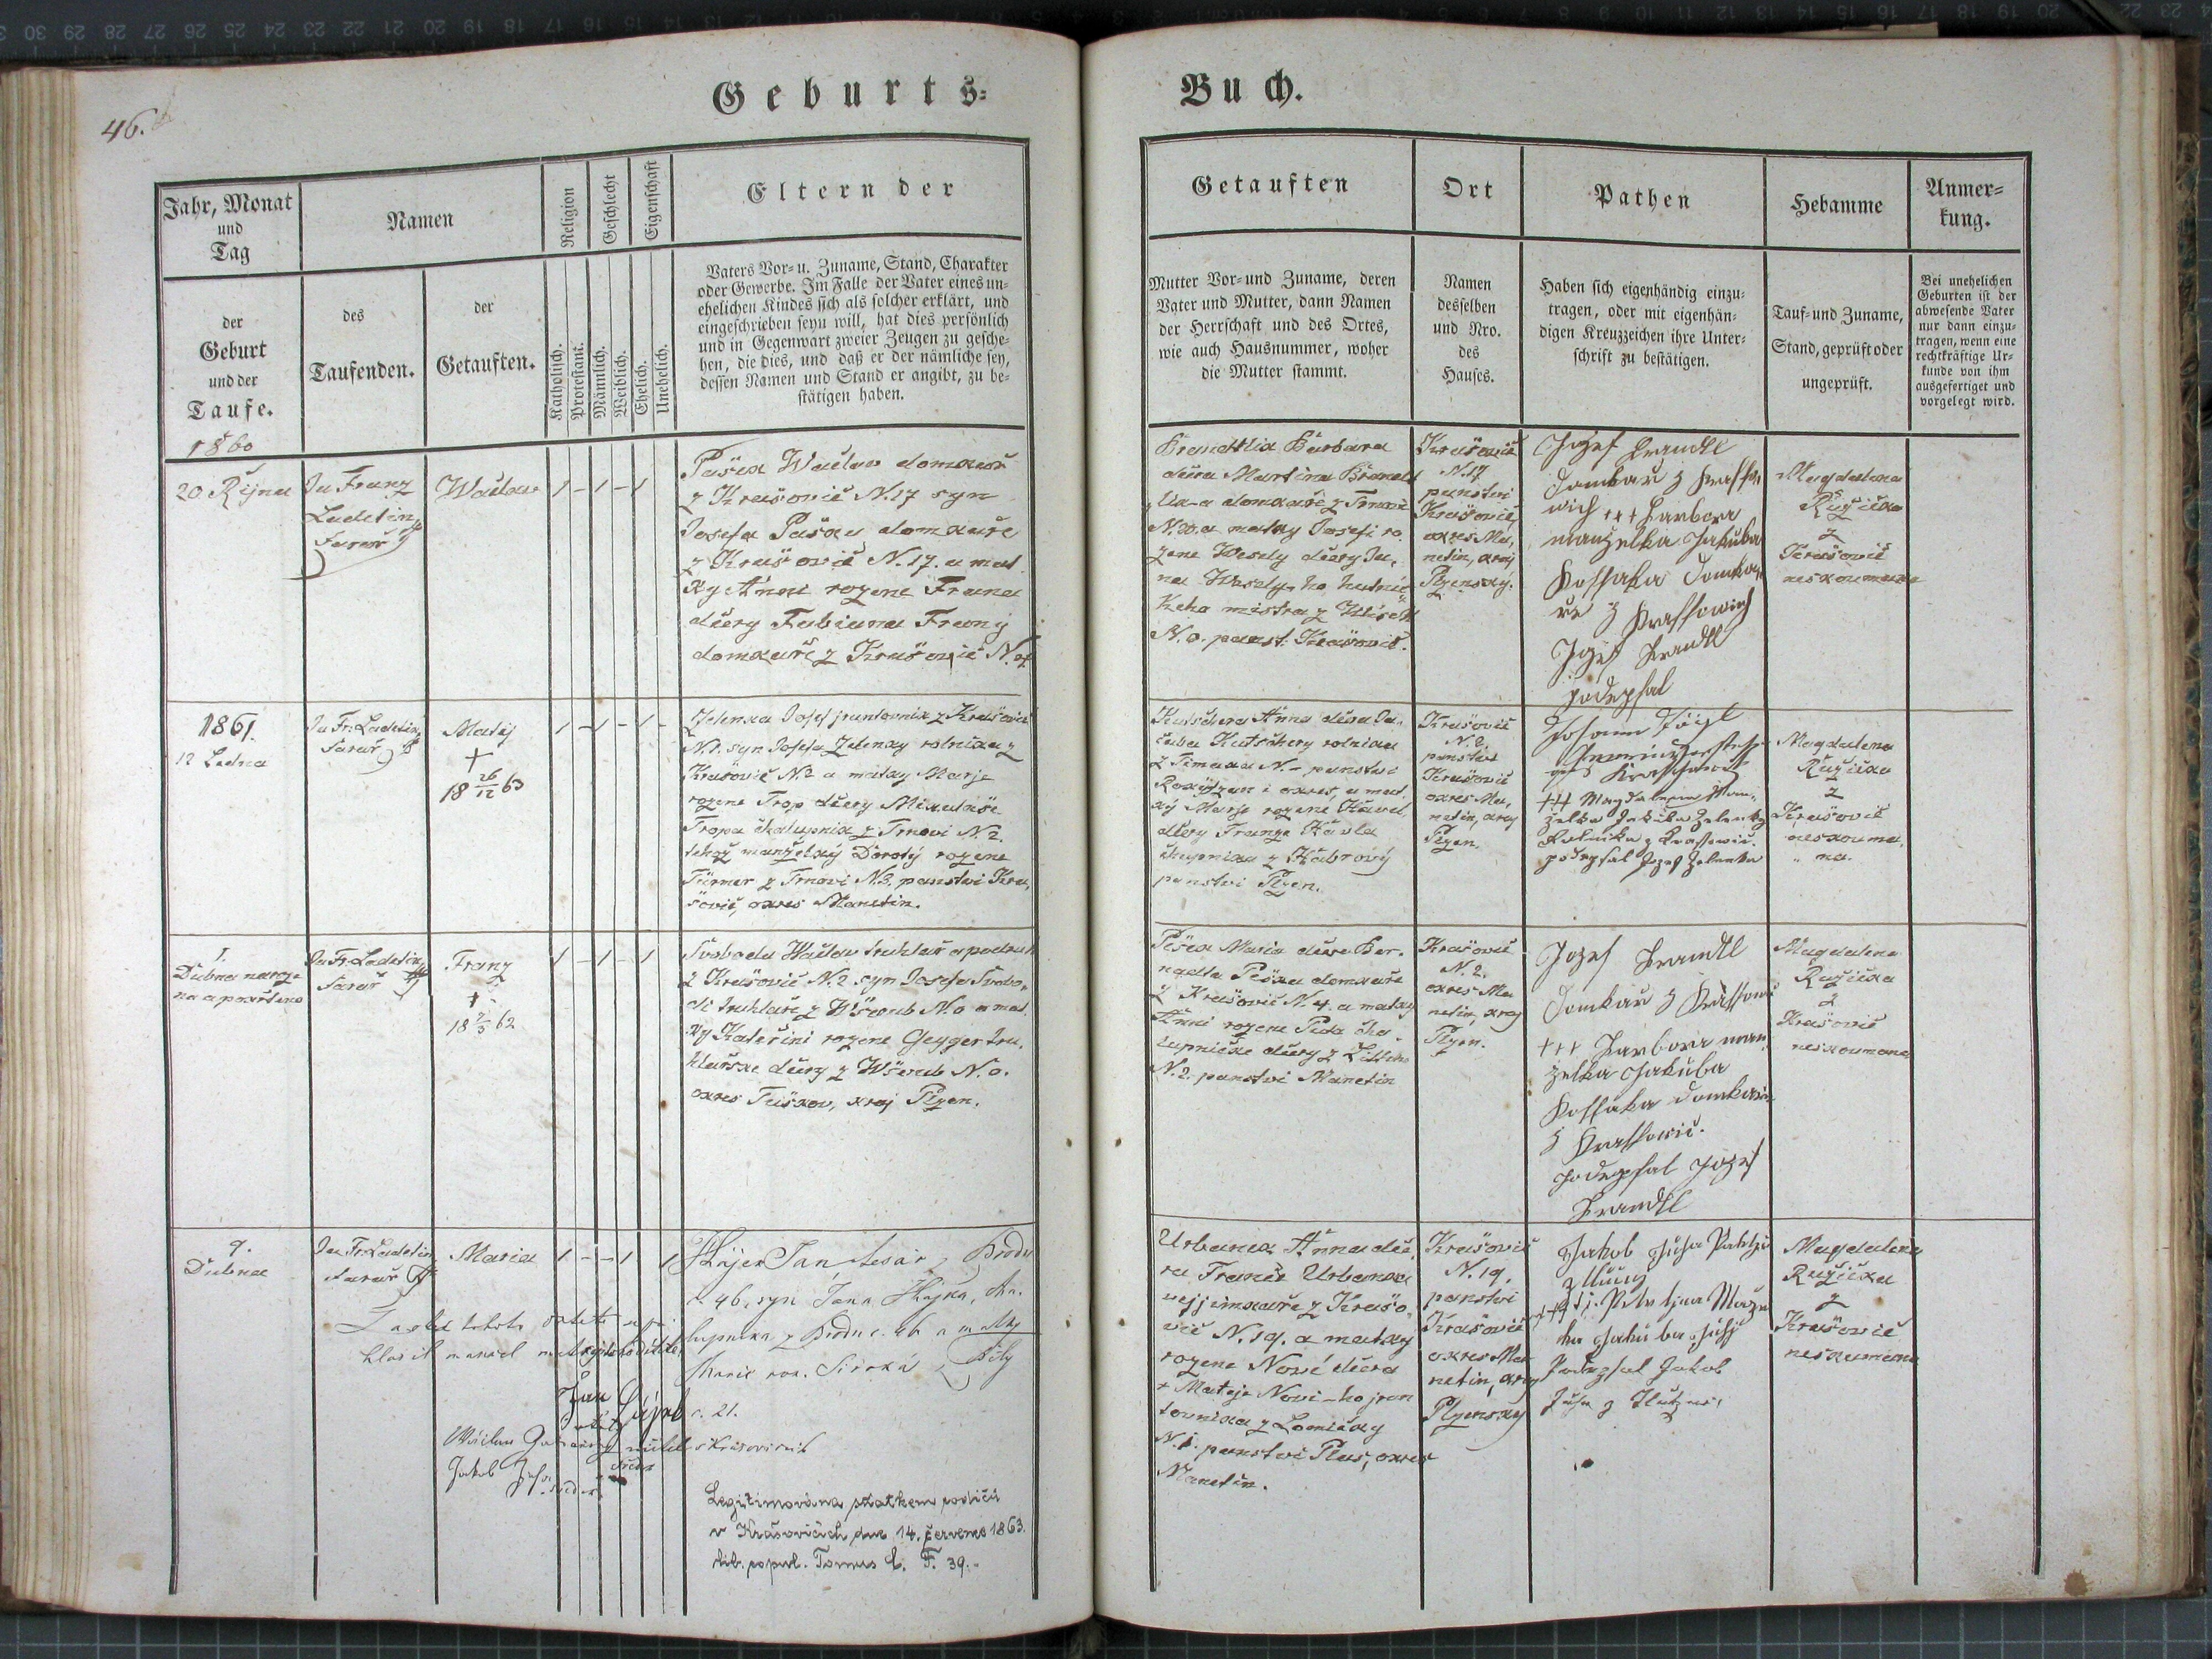 Geburts=
Buch.
46.
Jahr, Monat
und
Tag
Namen
Religion
Geschlecht
Eigenschaft
Eltern der
der
Geburt
und der
Taufe.
des
Taufenden.
der
Getauften.
Katholisch.
Protestant.
Männlich.
Weiblich.
Ehelich.
Unehelich.
Vaters Vor= u. Zuname, Stand, Charakter
oder Gewerbe. Im Falle der Vater eines un=
ehelichen Kindes sich als solcher erklärt, und
eingeschrieben seyn will, hat dies persönlich
und in Gegenwart zweier Zeugen zu gesche=
hen, die dies, und daß er der nämliche sey,
dessen Namen und Stand er angibt, zu be=
stätigen haben.
Getauften
Ort
Pathen
Hebamme
Anmer=
kung.
Mutter Vor=und Zuname, deren
Vater und Mutter, dann Namen
der Herrschaft und des Ortes,
wie auch Hausnummer, woher
die Mutter stammt.
Namen
desselben
und Nro.
des
Hauses.
Haben sich eigenhändig einzu=
tragen, oder mit eigenhän=
digen Kreuzzeichen ihre Unter=
schrift zu bestätigen.
Tauf=und Zuname,
Stand, geprüft oder
ungeprüft.
Bei unehelichen
Geburten ist der
abwesende Vater
nur dann einzu=
tragen, wenn eine
rechtkräftige Ur=
kunde von ihm
ausgefertiget und
vorgelegt wird.
1860
20 Rijna
Franz
Ladetin
Farař
Waclaw
1 - 1 - 1
Paška Waclav domkař
z Krašovic N. 17 syn
Josefa Pašku domkaře
z Krašovic N. 17. a mat
ky Anni rozene Frana
dcery Fabiana Frany
domkaře z Krašovic N. 4
Barbara
dcera Martina
domkaře z Trnovi
N. a matky Josefi ro
zene Wesely dcery Ja,
na Wesely-ho
keho mistra z
N. 0. panst. Krašovic.
Krašovic
N. 17
panstvi
Krašovic,
okres Ma,
netin, kraj
Plzensky.
Jozef Brandtl
domkař z
+++ Barbora
manzelka Jakuba
Kossaka
z Krassowich
Jozef Brandtl
podepsal
Magdalena
Ružička
z
Krašovic
neskoumana
1861.
12 Ledna
Fr. Ladetin
Farař
Matěj
+
18 26/12 63
1 - 1 - 1 -
Zelenka Josef gruntovnik z Krašovic
N. 2. syn Josefa Zelenky rolnika z
Krašovic N. 2 a matky Marje
rozene Trop dcery Mikulaše
Tropa chalupnik z Trnovi N. 2.
tehož manželky Doroty rozene
Türmer z Trnovi N. 3. panstvi Kra,
šovic, okres Manetin.
Kutschera Anna dcera Ja,
kuba Kutschery rolnika
z N. - panstvi
Rokytzan i okres, a mat
ky Marje rozene Havel,
dcery Franze Havla
z
panstvi Plzen.
Krašovic
N. 2
panstvi
Krašovic
okres Ma,
netin, kraj
Plzen.
Johann
+++ Magdalena Man,
želka Jakuba Zelenky
Rolnika z Krassowic.
podepsal Jozef Zelenka
Magdalena
Ružička
z
Krašovic
neskouma,
na.
1
Dubna naroze
na a pokrtena
Fr. Ladetin
Farař
Franz
+
18 62
1 - 1 - 1
Svoboda Waclav truhlař a podruh
z Krašovic N. 2 syn Josefa Svobo,
di truhlaře z Wšerub N. 0 a mat
ky Kateřini rozene Geyger tru,
hlařske dcery z Wšerub N. 0.
okres Tuškov, kraj Plzen.
Peška Maria dcera Ber,
nadta Pešku domkaře
z Krašovic N. 4. a matky
Anni rozene
lupničke dcery z
N. 2. panstvi Manetin
Krašovic
N. 2.
okres Ma
netin, kraj
Plzen.
Jozef Brandtl
domkař z
+++ Barbora man,
zelka Jakuba
Kossaka domkaře
z Krassowic.
podepsal Jozef
Brandtl
Magdalena
Ružička
z
Krašovic
neskoumana
9.
Dubna
Fr. Ladetin
Farař
Maria
1 - - 1 1
Hájek Jan, tesař z Brodu
č. 46, syn Jana Hájka, cha,
lupníka z Brodu č. 46 a matky
Marie roz. Široká z Bílý
č. 21.
Jan Hájek
Wáclav učitel v Krašovicích
svědek
Jakob Juha
svědek
Legitimována sňatkem rodičů
v Krašovicích dne 14. července 1863.
lib. copul. Tomus C. F. 39.
Urbanka Anna dce,
ra Franče Urbanka
vejminkaře z Krašo,
vic N. 19. a matky
rozene Nové dcera
+ Mateje Novi-ho grun
tovnika z Lomičky
N. 1. panstvi Plas, okres
Manetin.
Krašovic
N. 19.
panstvi
Krašovic
okres Ma
netin, kraj
Plzensky
Jakob Juha
Podepsal Jakob
Juha z
Magdalena
Ružička
z
Krašovic
neskoumana